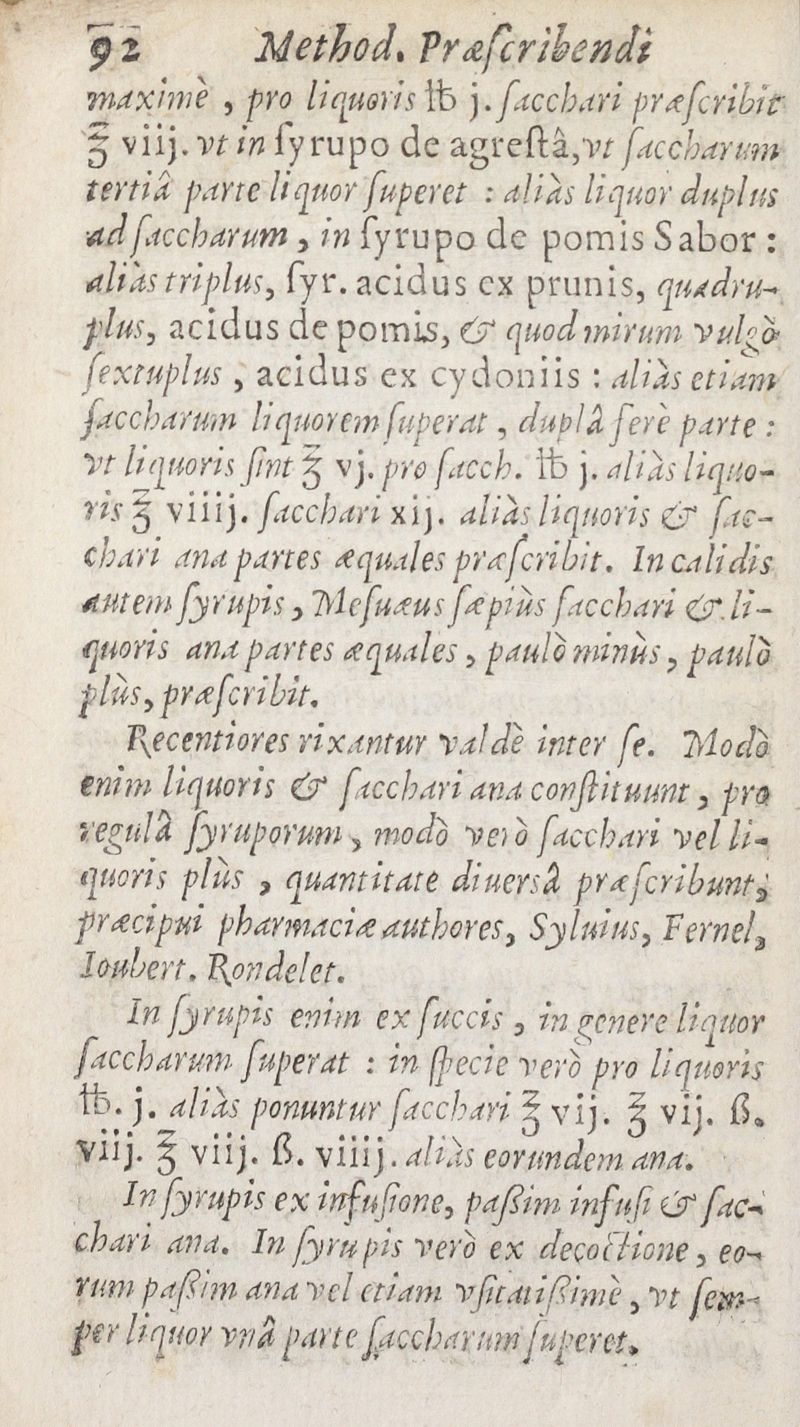 92 Method. Præſcribendi
maximè , pro liquoris ℔ j. ſacchari præſcribit
℥ viij. vt in ſyrupo de agreſtâ, vt ſaccharum
tertiâ parte liquor ſuperet : aliàs liquor duplus
ad ſaccharum , in ſyrupo de pomis Sabor :
aliàs triplus, ſyr. acidus ex prunis, quadru-
plus, acidus de pomis, & quod mirum vulgò
ſextuplus , acidus ex cydoniis : aliàs etiam
ſaccharum liquorem ſuperat , duplâ ferè parte :
vt liquoris ſint ℥ vj. pro ſacch. ℔ j. aliàs liquo-
ris ℥ viiij. ſacchari xij. aliàs liquoris & ſac-
chari ana partes æquales præſcribit. In calidis
autem ſyrupis , Meſuæus ſæpiùs ſacchari & li-
quoris ana partes æquales , paulò minùs , paulò
plùs, præſcribit.
Recentiores rixantur valdè inter ſe. Modò
enim liquoris & ſacchari ana conſtituunt , pro
regulâ ſyruporum , modò verò ſacchari vel li-
quoris plùs , quantitate diuersâ præſcribunt,
præcipui pharmaciæ authores, Syluius, Fernel,
Ioubert. Rondelet.
In ſyrupis enim ex ſuccis , in genere liquor
ſaccharum ſuperat : in ſpecie verò pro liquoris
℔. j. aliàs ponuntur ſacchari ℥ vij. ℥ vij. ß.
viij. ℥ viij. ß. viiij. aliàs eorundem ana.
In ſyrupis ex infuſione, paßim infuſi & ſac-
chari ana. In ſyrupis verò ex decoctione , eo-
rum paßim ana vel etiam vſitatißimè , vt ſem-
per liquor vnâ parte ſaccharum ſuperet.